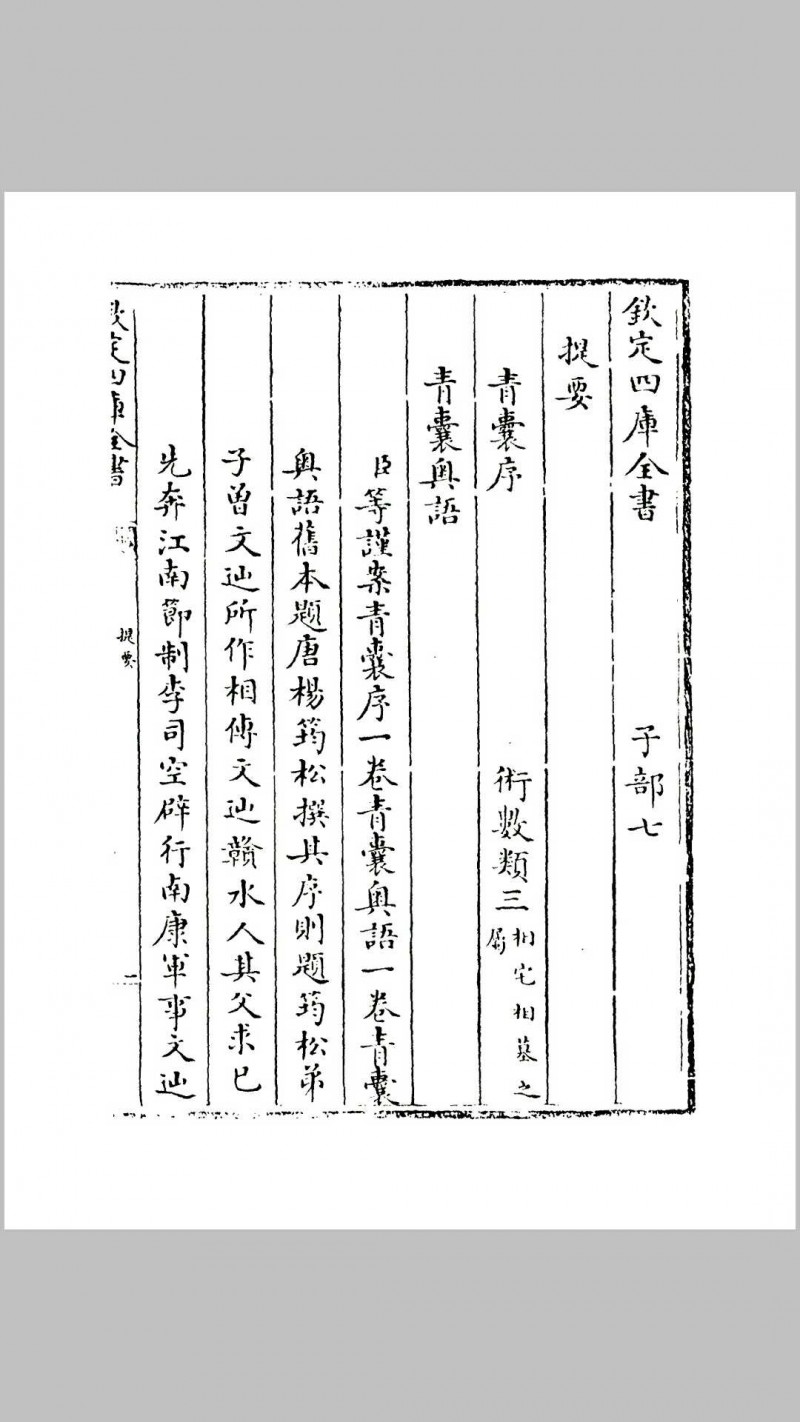 欽定四庫全書 子部七
提要
青囊序 術數類三 相宅相墓之
屬
青囊奥語
臣等謹案青囊序一卷青囊奥語一卷青囊
奥語舊本題唐楊筠松撰其序則題筠松弟
子曽文辿所作相傳文辿贛水人其父求已
先奔江南節制李司空辟行南康軍事文辿
欽定四庫全書 提要 二